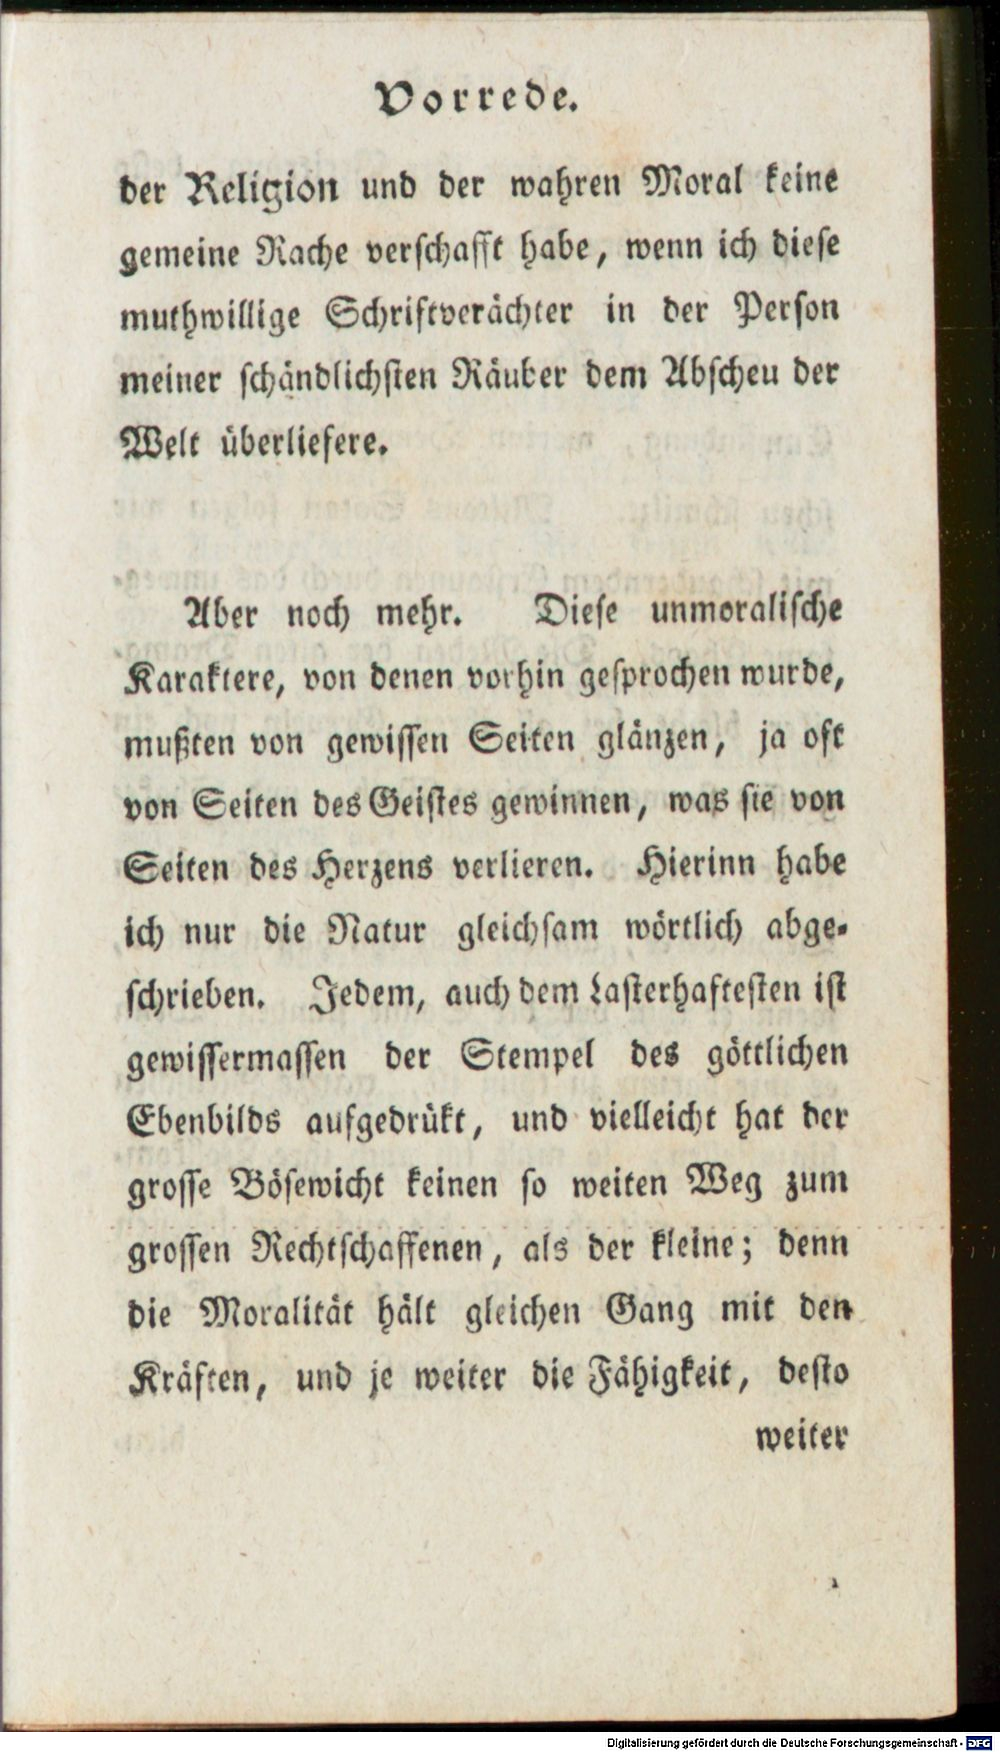 Vorrede.
der Religion und der wahren Moral keine
gemeine Rache verschafft habe, wenn ich diese
muthwillige Schriftverächter in der Person
meiner schändlichsten Räuber dem Abscheu der
Welt überliefere.
Aber noch mehr. Diese unmoralische
Karaktere, von denen vorhin gesprochen wurde,
mußten von gewissen Seiten glänzen, ja oft
von Seiten des Geistes gewinnen, was sie von
Seiten des Herzens verlieren. Hierinn habe
ich nur die Natur gleichsam wörtlich abge-
schrieben. Jedem, auch dem Lasterhaftesten ist
gewissermassen der Stempel des göttlichen
Ebenbilds aufgedrükt, und vielleicht hat der
grosse Bösewicht keinen so weiten Weg zum
grossen Rechtschaffenen, als der kleine; denn
die Moralität hält gleichen Gang mit den
Kräften, und je weiter die Fähigkeit, desto
weiter
Digitalisierung gefördert durch die Deutsche Forschungsgemeinschaft - DFG